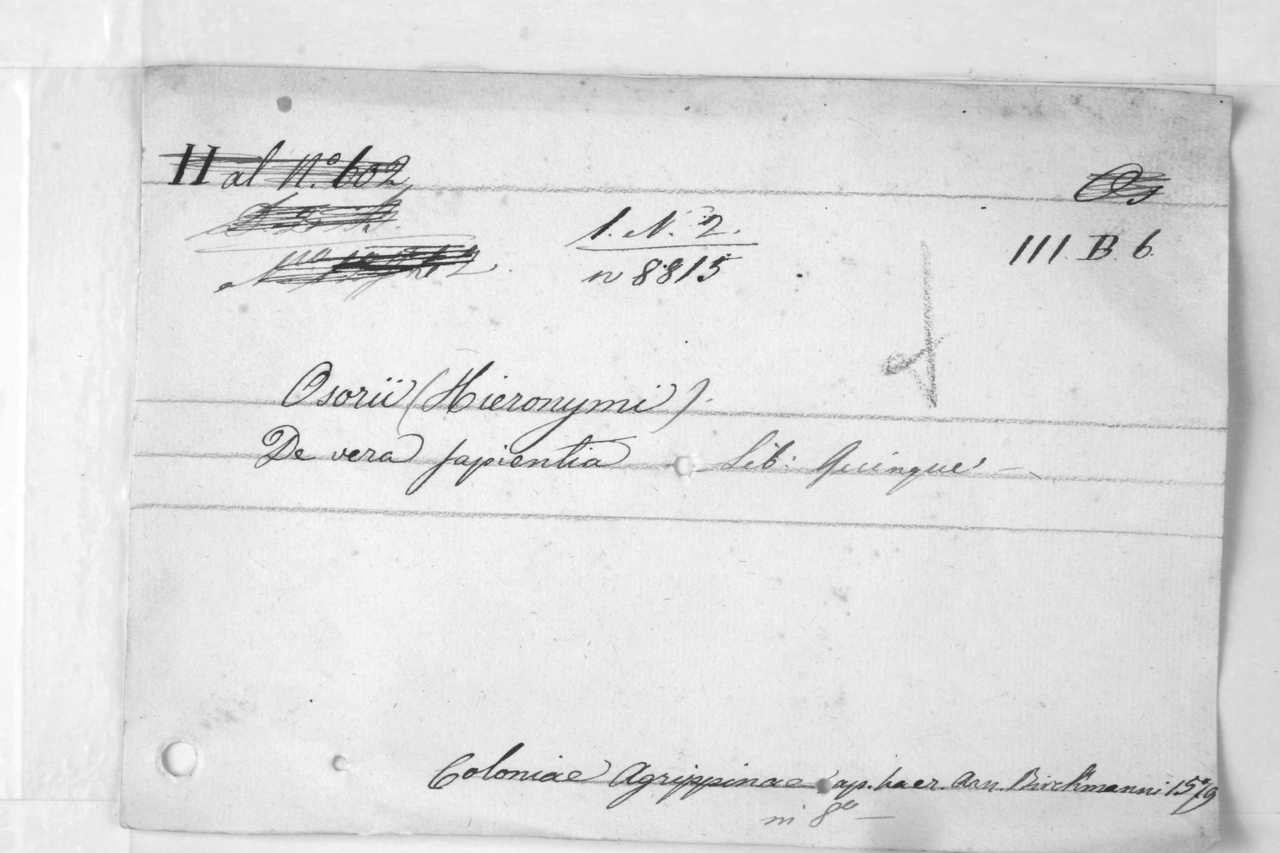 II al N.º 602
Os
1. N. 2.
n 8815
III. B. 6.
Osorii (Hieronymi).
De vera sapientia Lib: Quinque
Coloniae Agrippinae ap. haer. Arn. Birckmanni 1579
in 8º